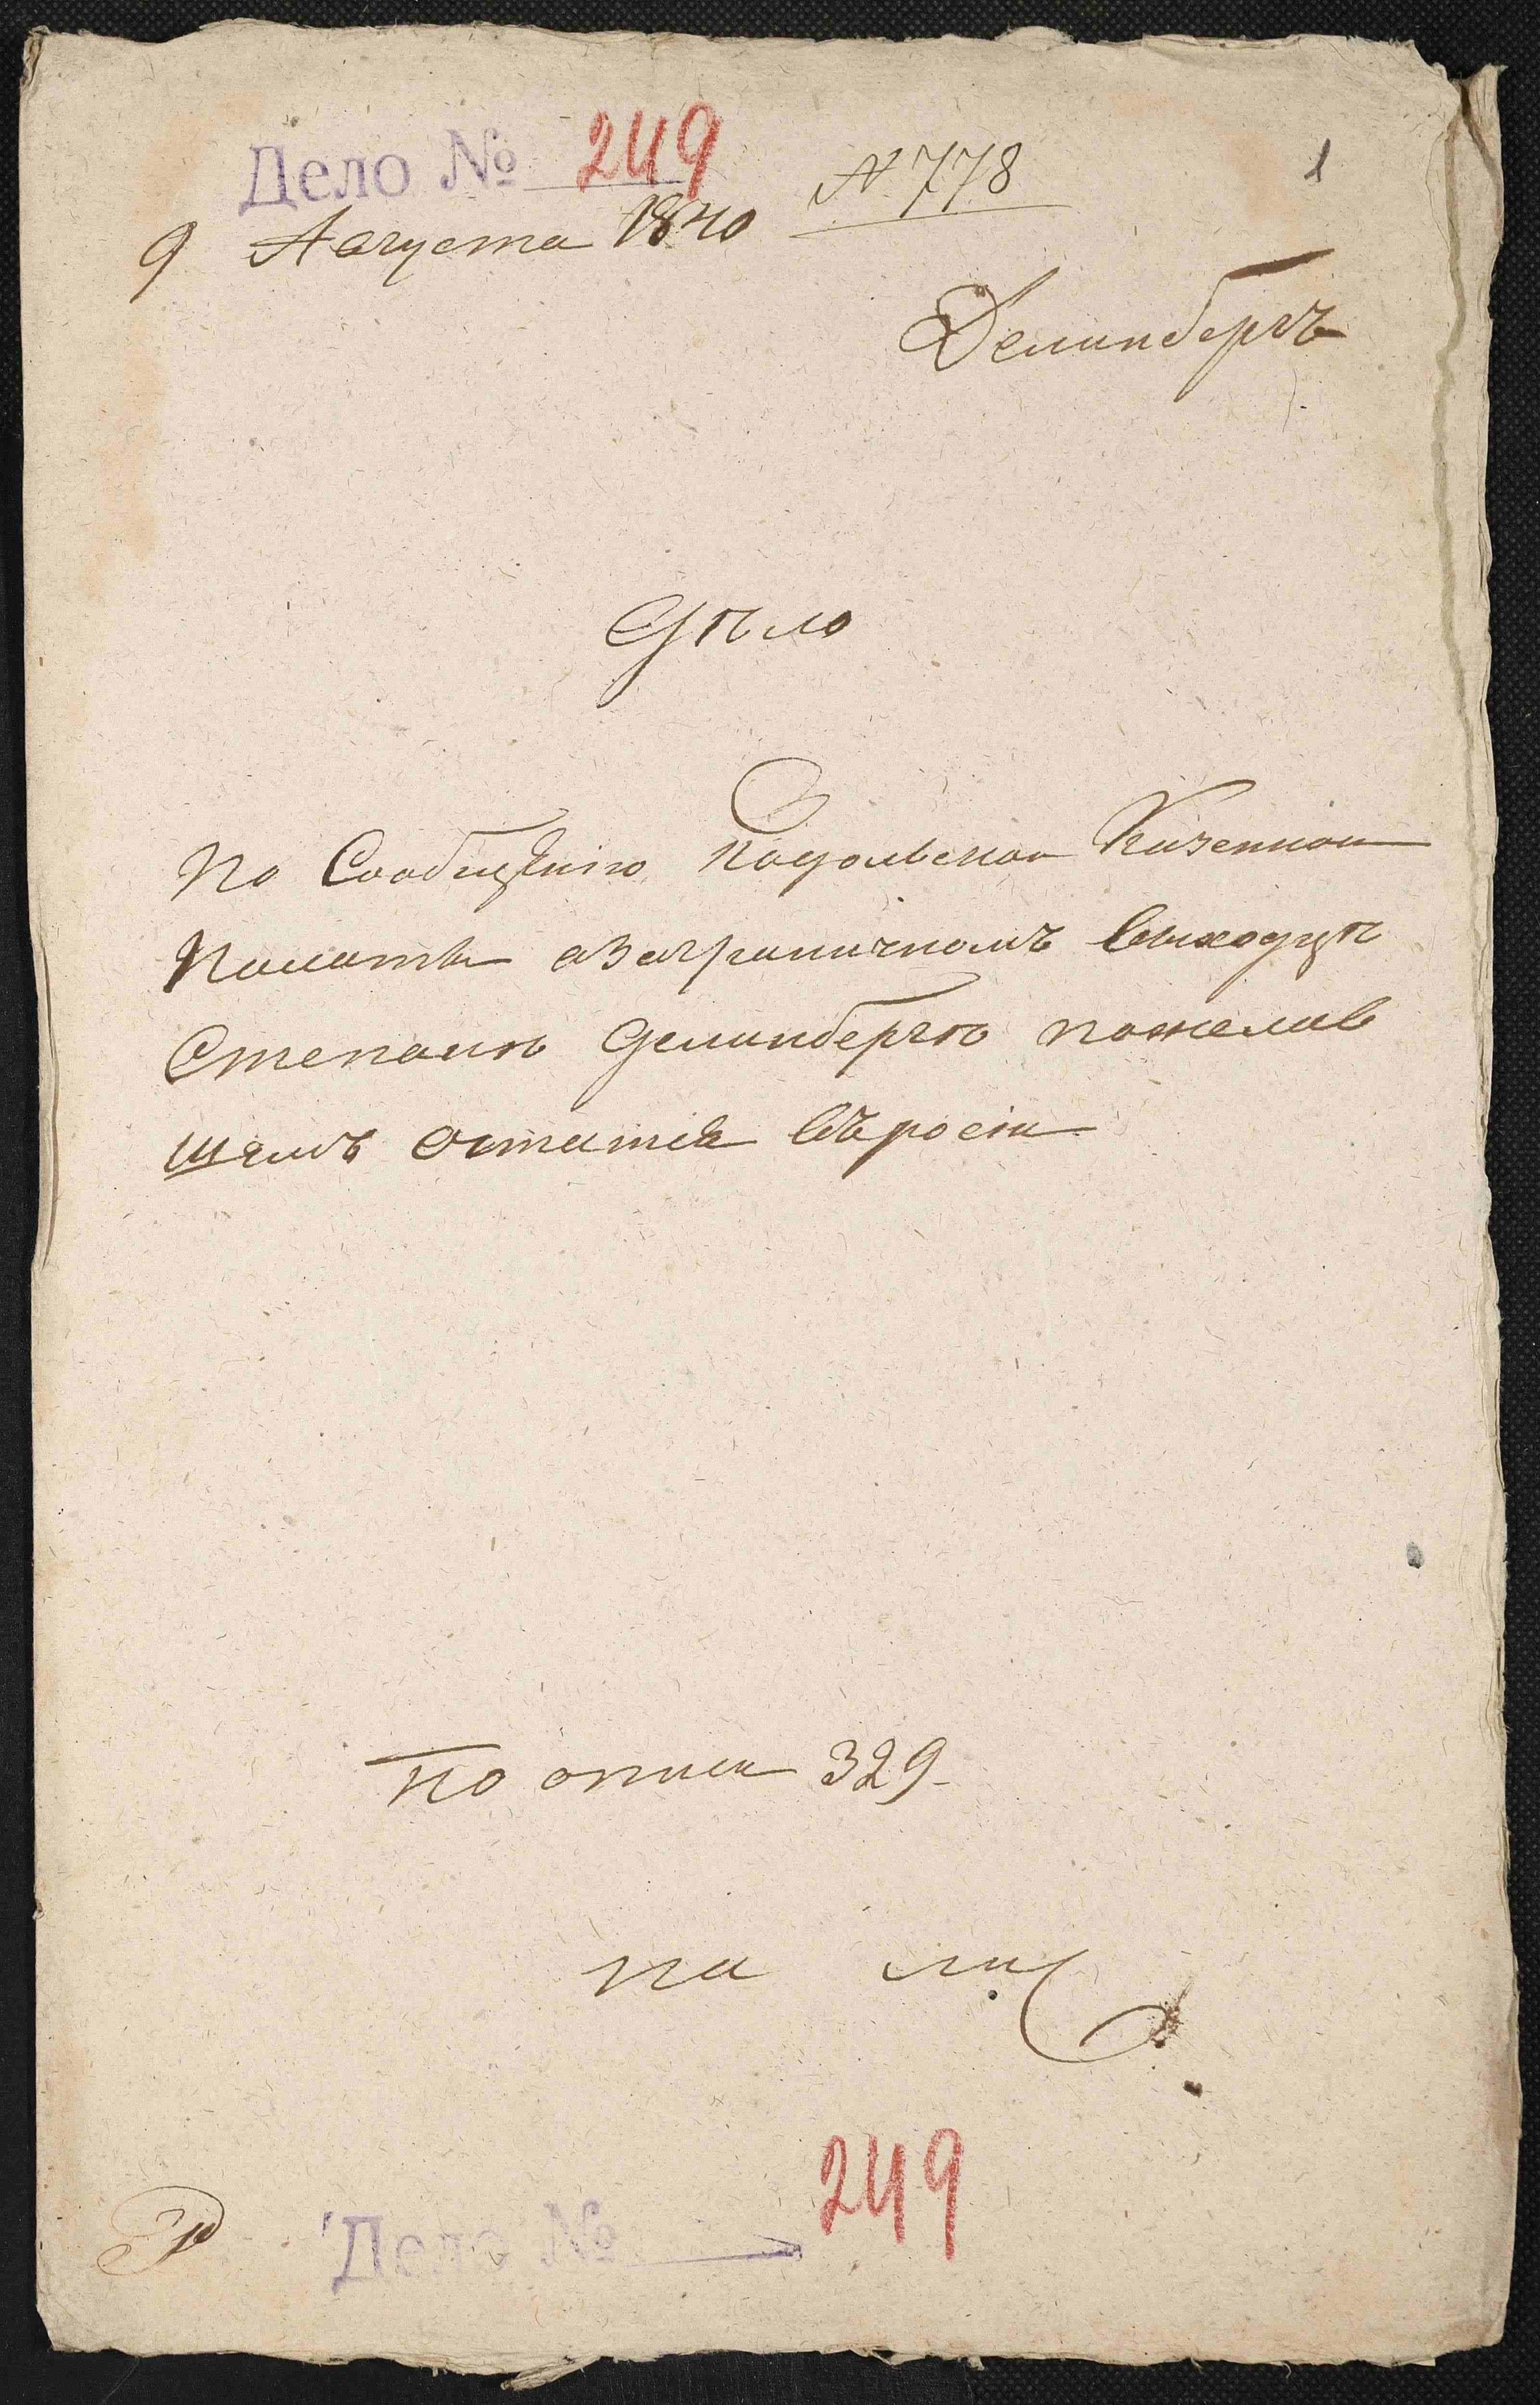 Дело № 249
N 778
1
9 Августа 1840
Делинбергъ
Дѣло
По Сообщенію Подольской Казенной
Палаты озаграничномъ выходцѣ
Степанѣ Делинбергѣ пожелав
шемъ остатся въросіи
По описи 329
на ли
249
Дело №